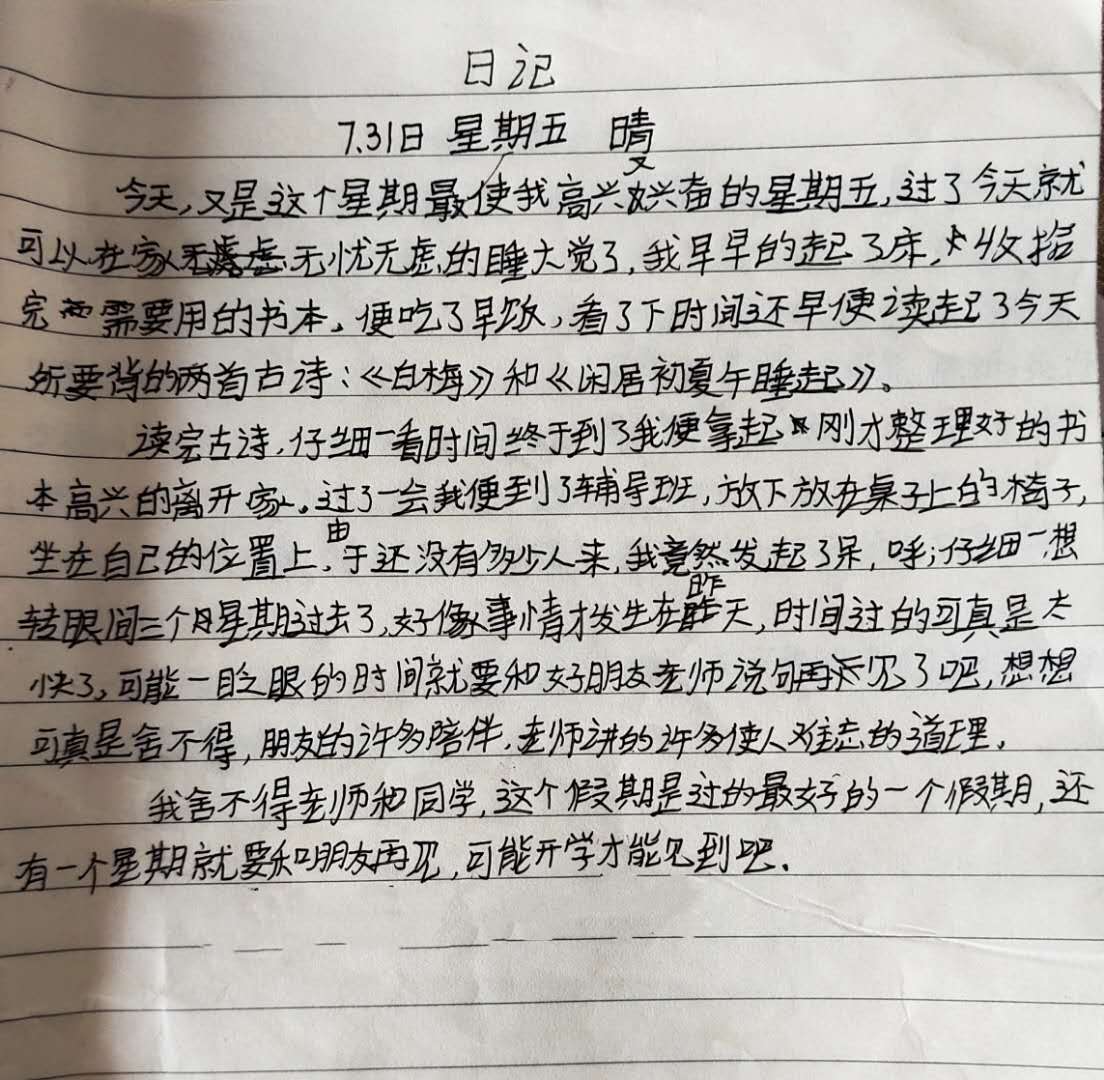 日记
7.31日 星期五 晴
今天,又是这个星期最使我高兴又兴奋的星期五,过了今天就
可以在家无忧无虑的睡大觉了,我早早的起了床,收拾
完需要用的书本。便吃了早饭,看了下时间还早便读起了今天
所要背的两首古诗:《白梅》和《闲居初夏午睡起》。
读完古诗,仔细一看时间终于到了我便拿起刚才整理好的书
本高兴的离开家。过了一会我便到了辅导班,放下放在桌子上的椅子,
坐在自己的位置上,由于还没有多少人来,我竟然发起了呆,呼;仔细一想
转眼间三个星期过去了,好像事情才发生在昨天,时间过的可真是太
快了,可能一眨眼的时间就要和好朋友老师说句再见了吧,想想
可真是舍不得,朋友的许多陪伴,老师讲的许多使人难忘的道理。
我舍不得老师和同学,这个假期是过的最好的一个假期,还
有一个星期就要和朋友再见,可能开学才能见到吧。